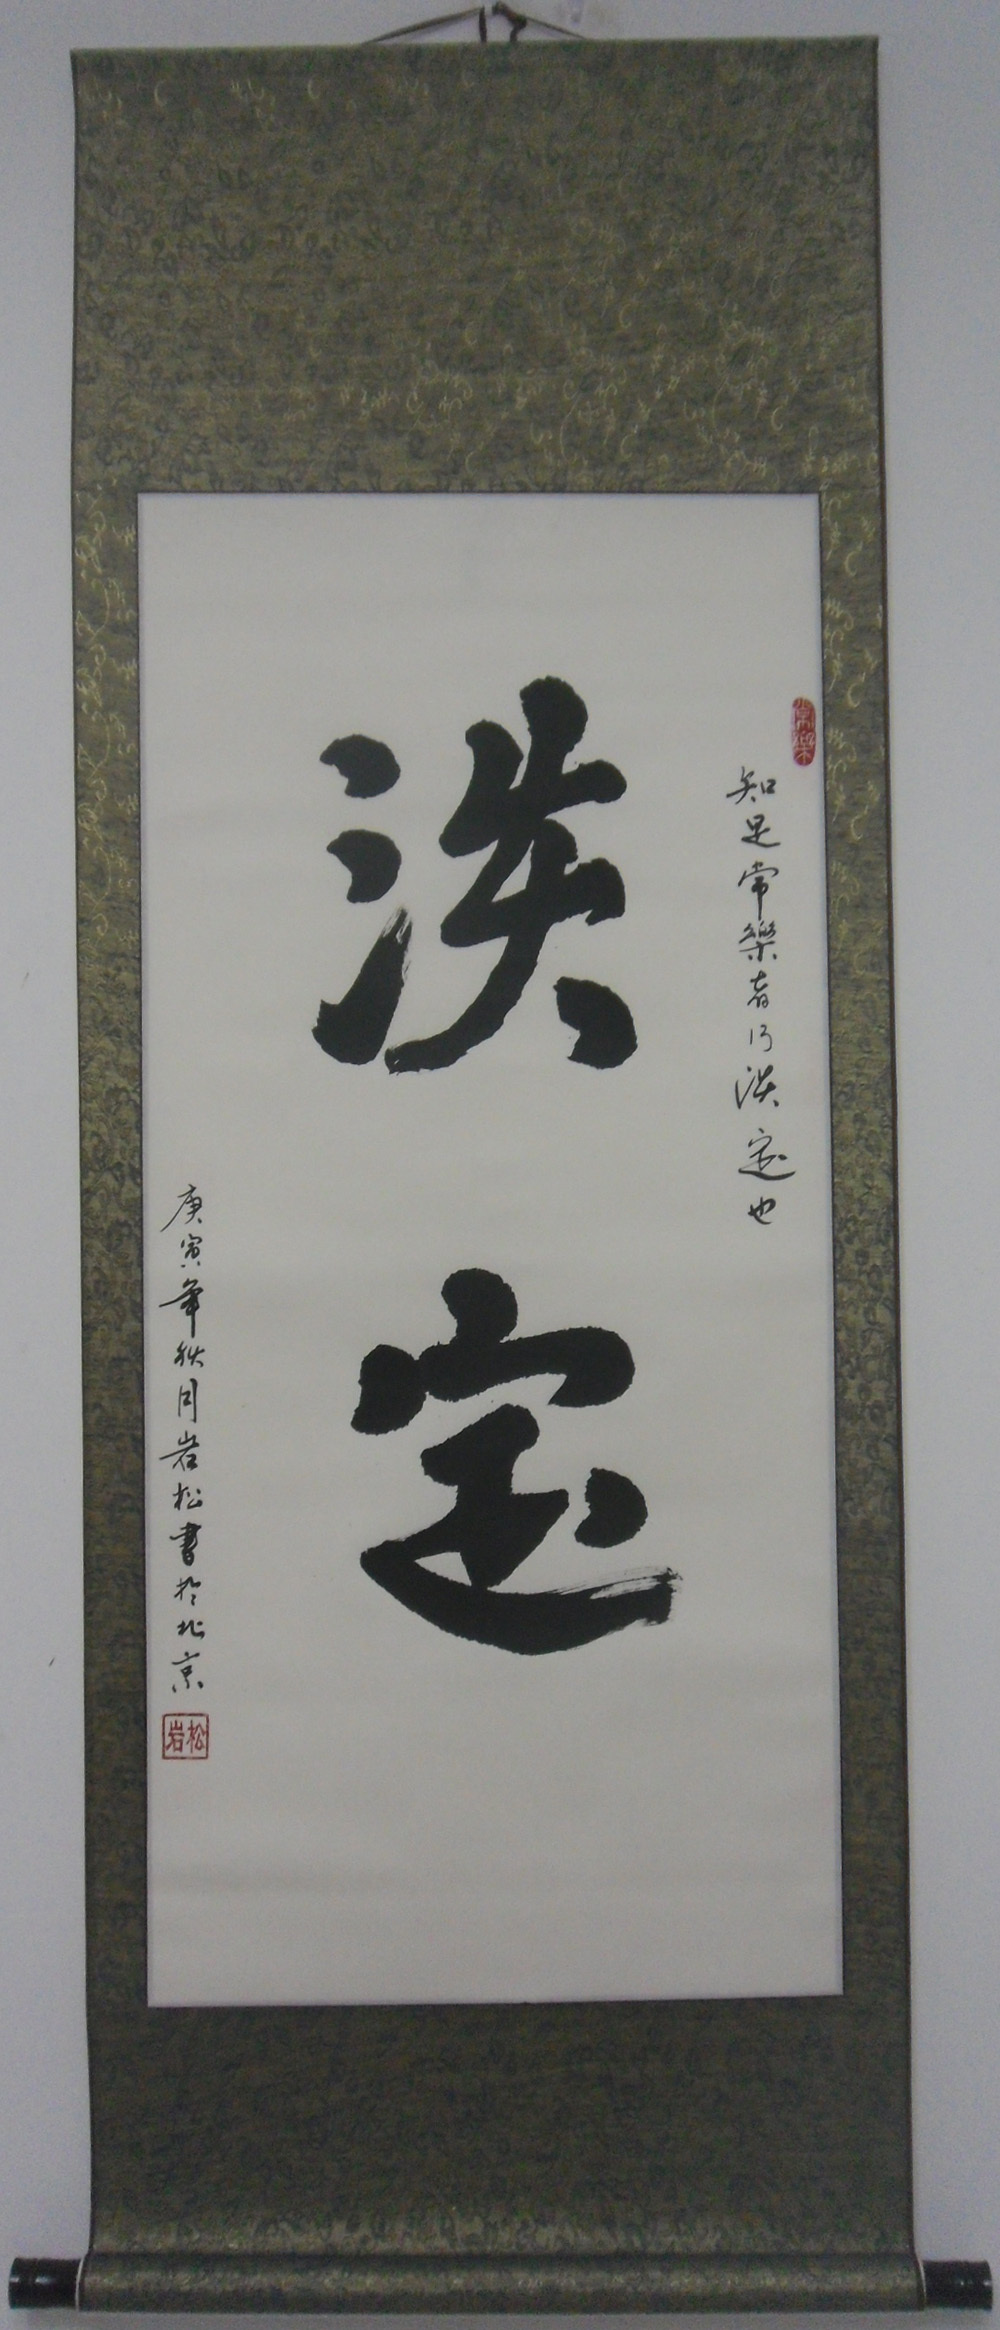 常樂
知足常樂者乃淡定也
淡定
庚寅年秋月岩松書於北京
岩松